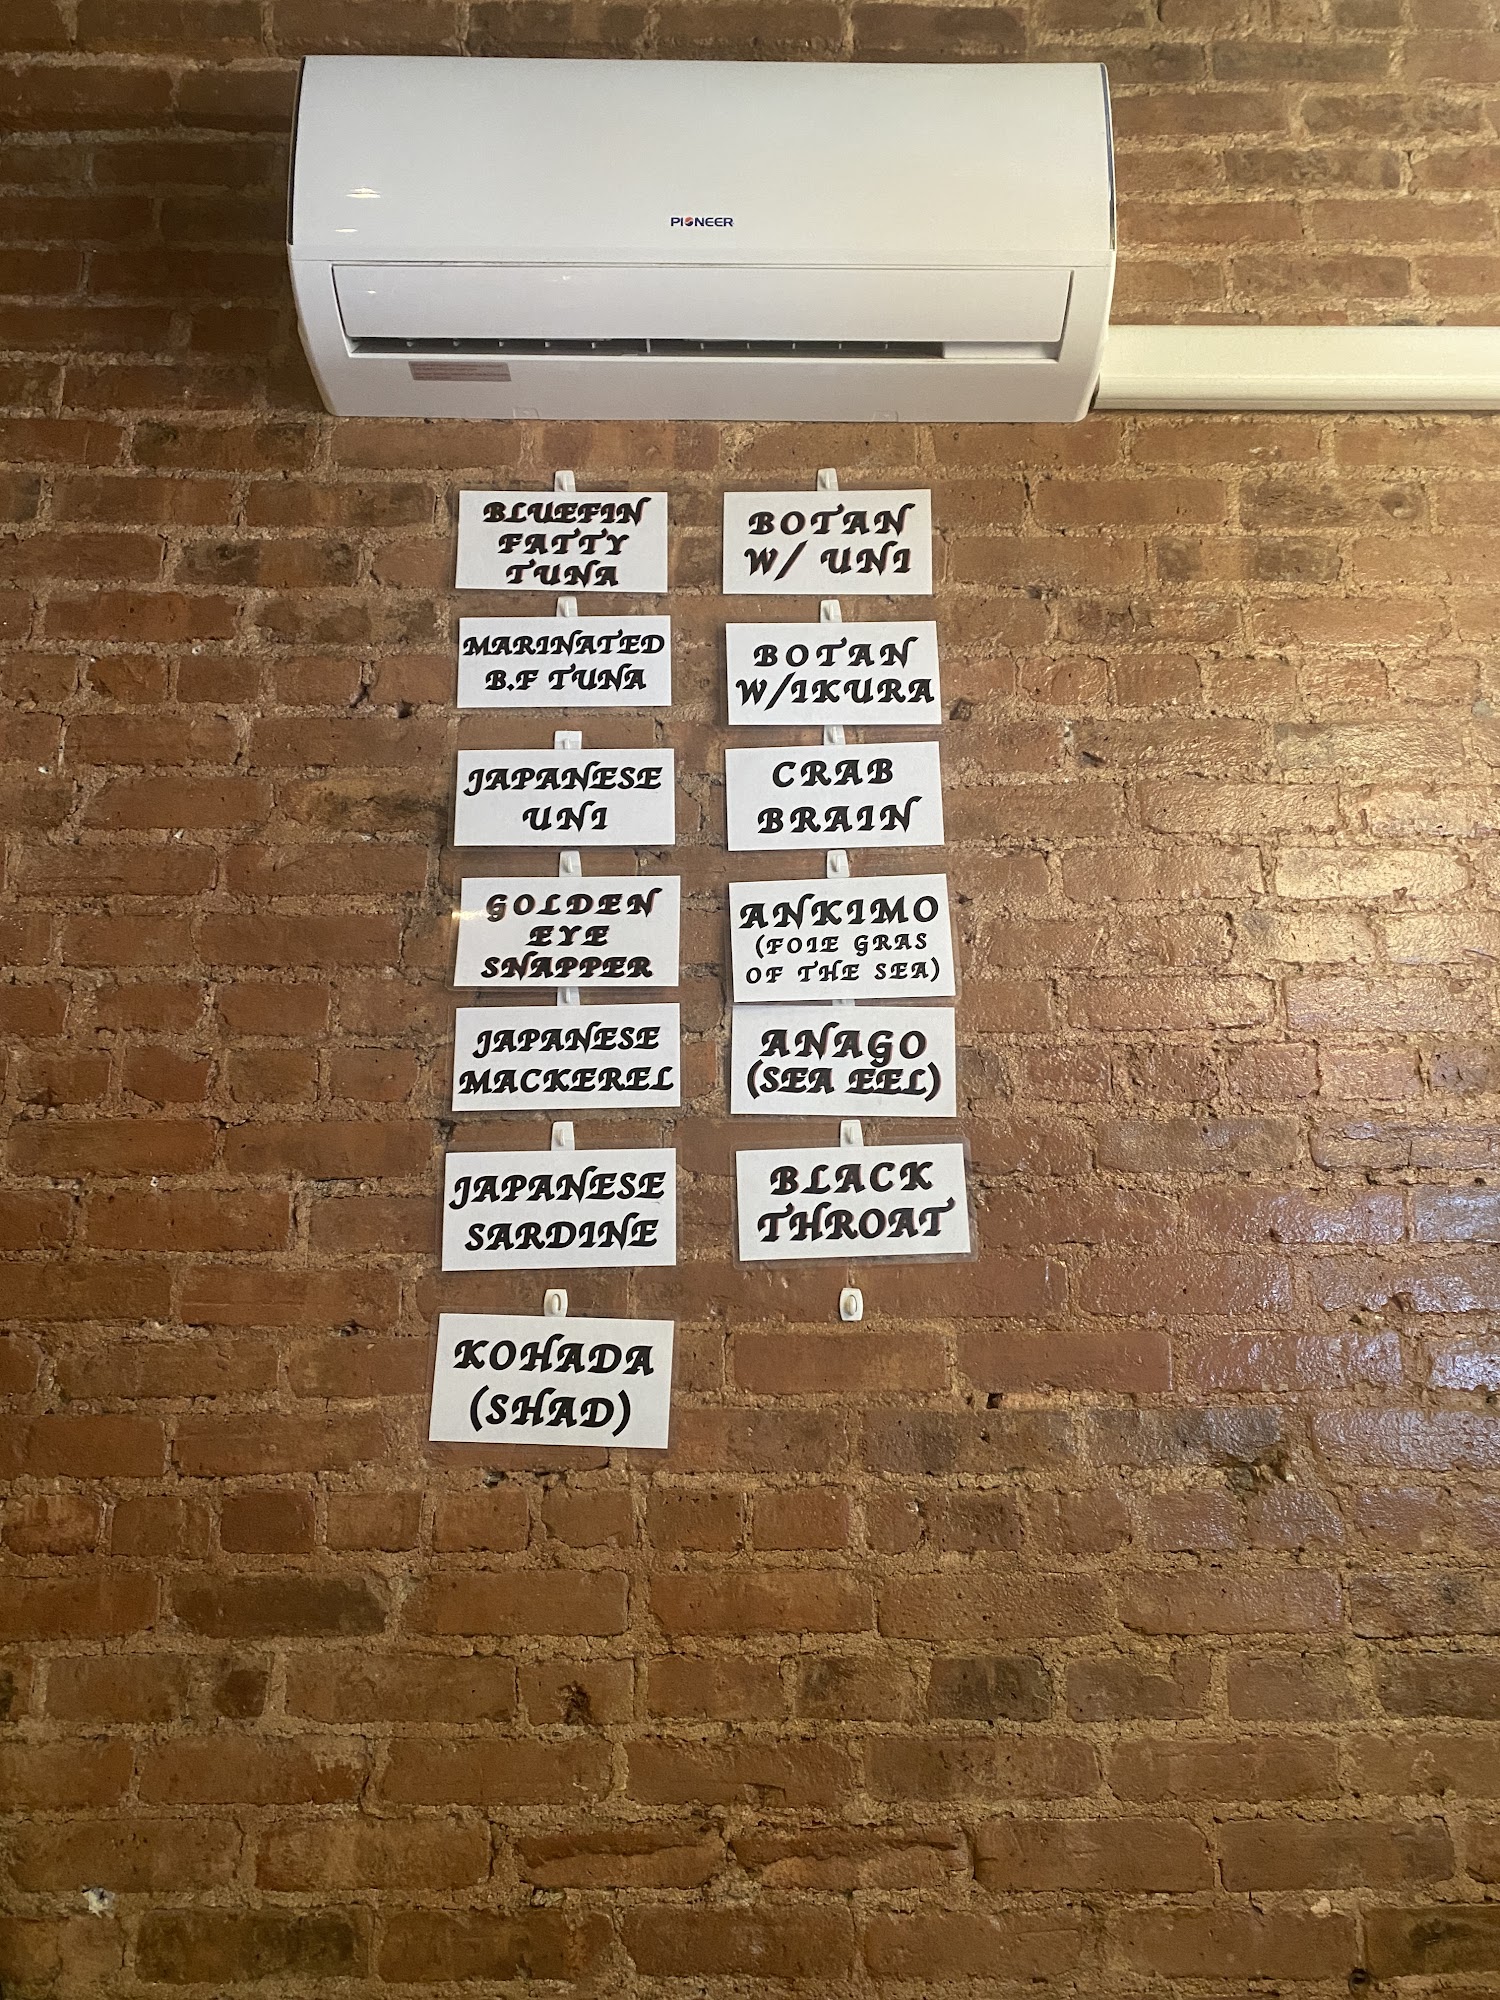 PIONEER
BLUEFIN
FATTY
TUNA
MARINATED
B.F TUNA
JAPANESE
UNI
GOLDEN
EYE
SNAPPER
JAPANESE
MACKEREL
JAPANESE
SARDINE
KOHADA
(SHAD)
BOTAN
W/ UNI
BOTAN
W/IKURA
CRAB
BRAIN
ANKIMO
(FOIE GRAS
OF THE SEA)
ANAGO
(SEA EEL)
BLACK
THROAT